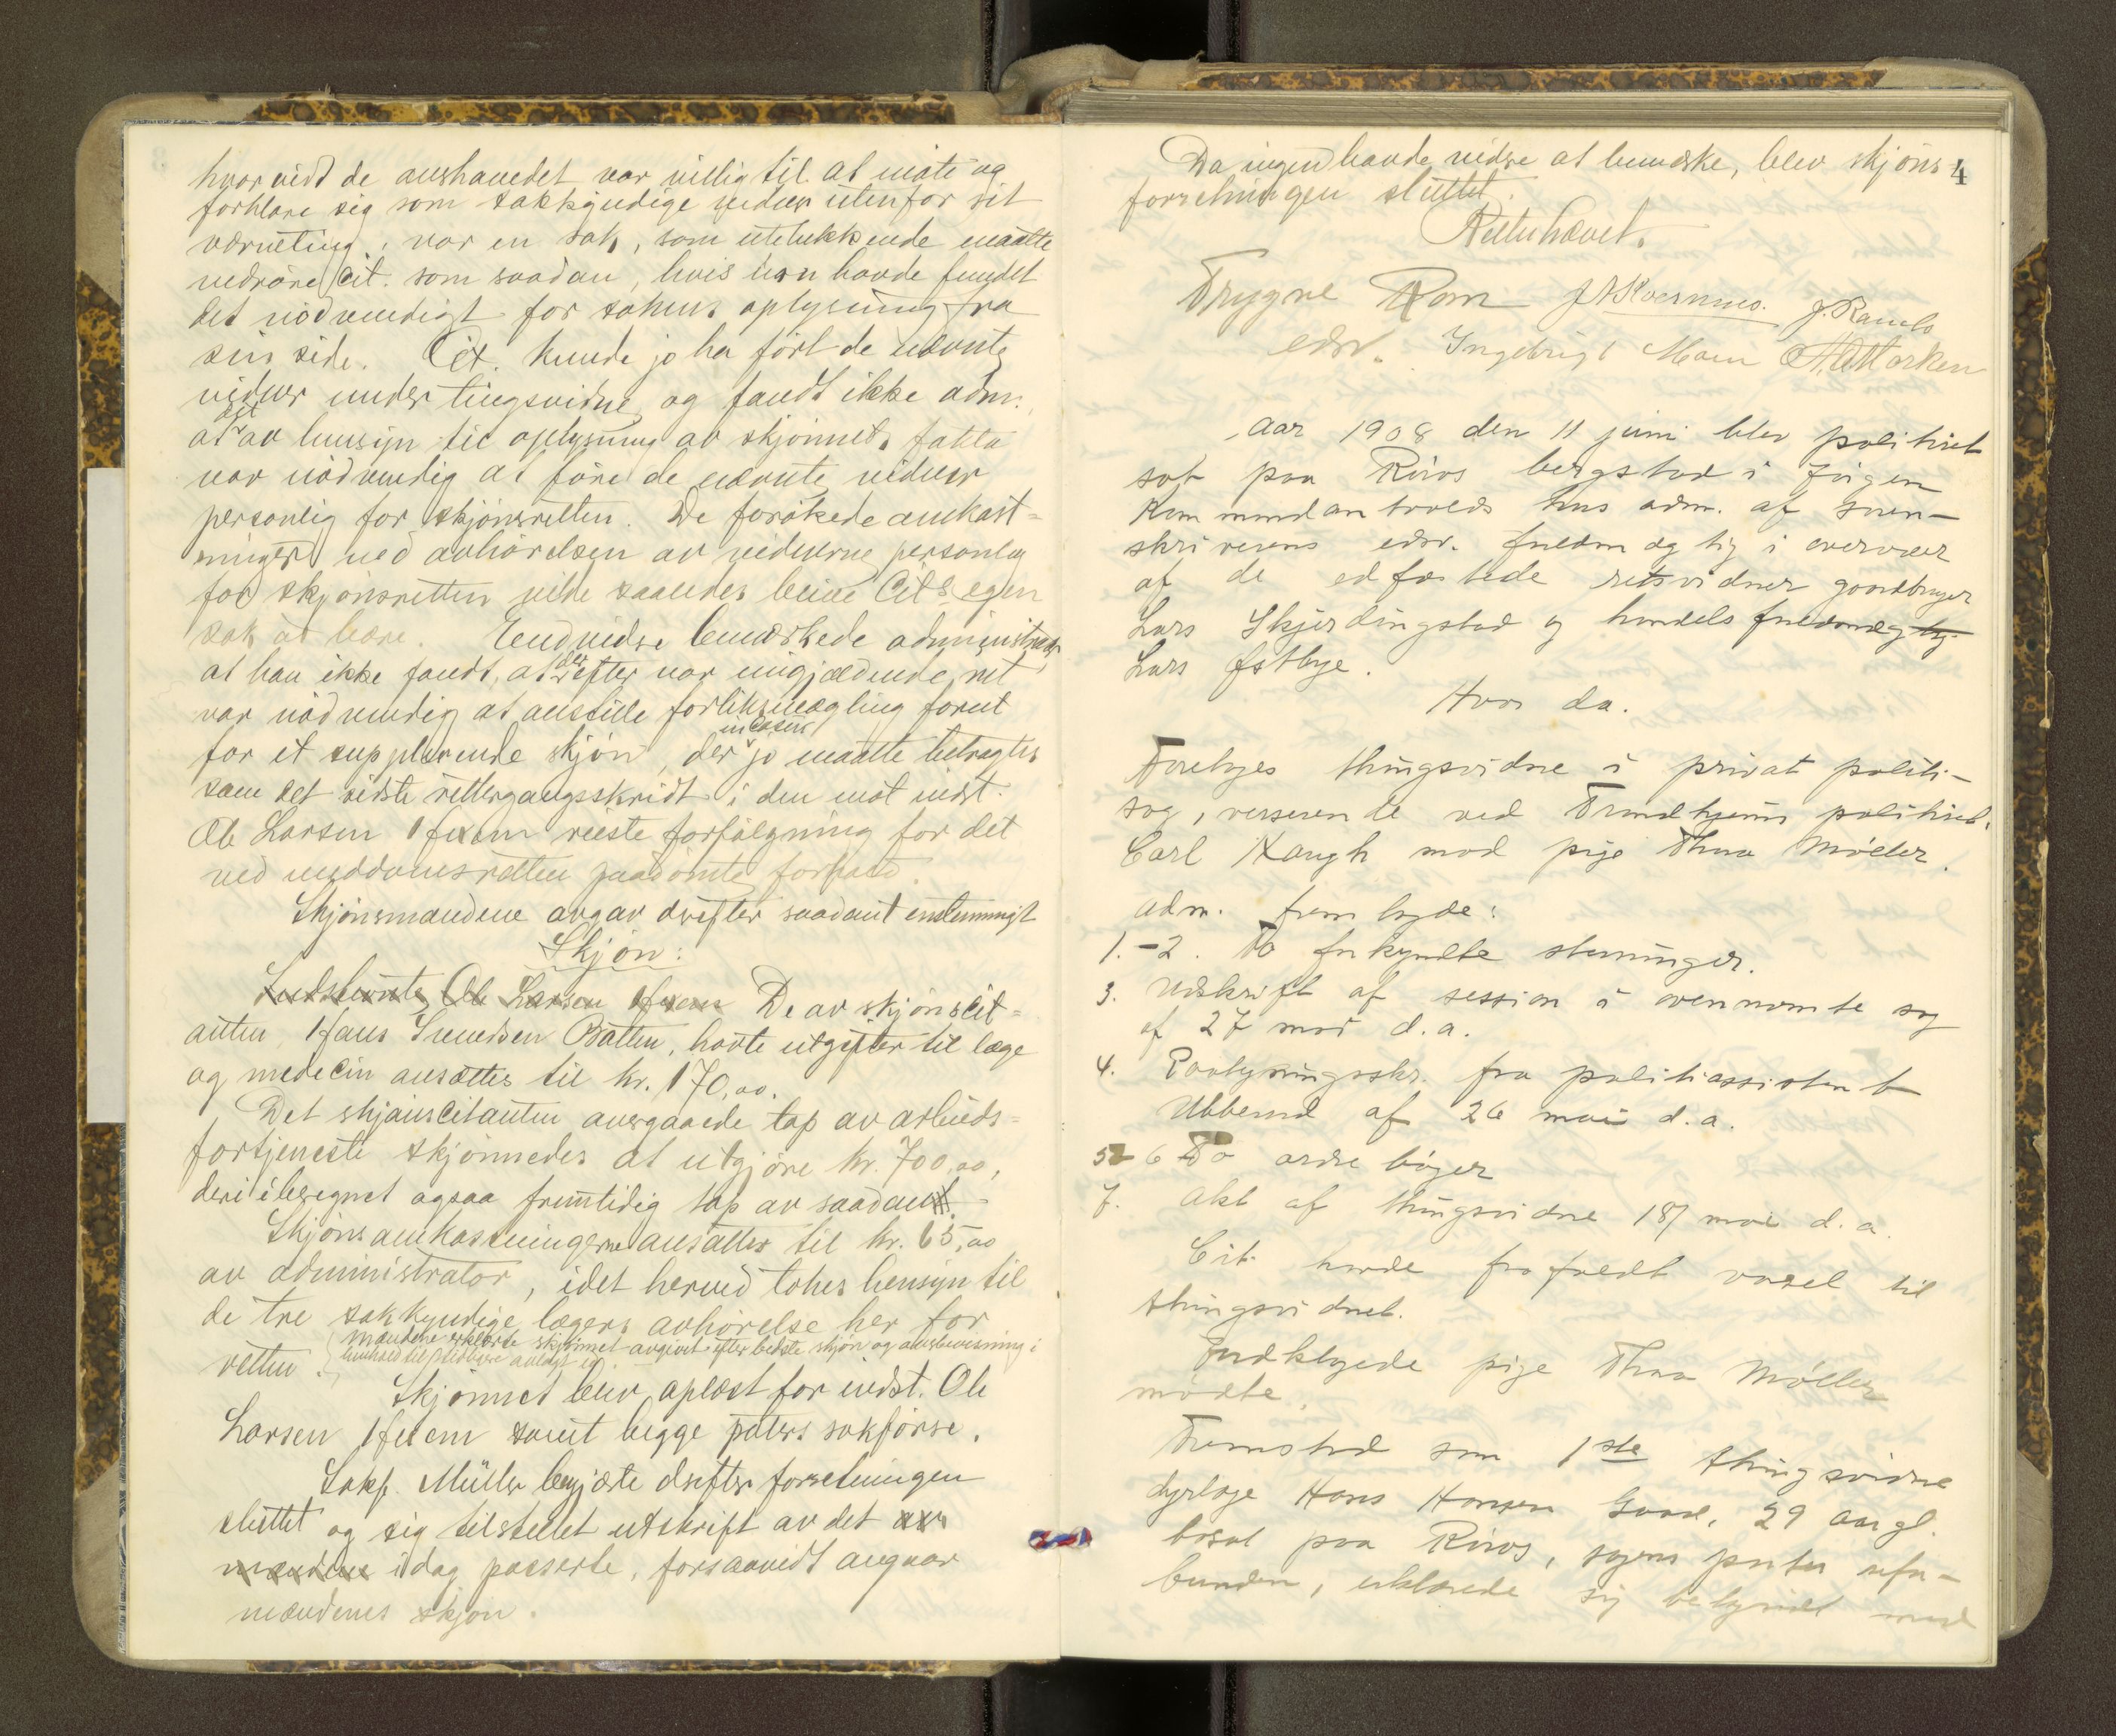 hvorvidt de anshavedet var villig til at møte og
forklare sig som sakkyndige vidner utenfor sit
værneting, var en sak, som utelukkende maatte
vedrøre Cit. som saadan, hvis han havde fundet
det nødvendigt for sakens oplysning fra
sin side. Cit. kunde jo ha ført de nævnte
vidner under tingsvidne og fandt ikke adm.
at det av hensyn til oplysning av skjønnets fakta
var nødvendig at føre de nævnte vidner
personlig for skjønsretten. De forøkede omkost-
ninger ved avhørelsen av vidnerne personlig
for skjønsretten vilde saaledes bli Cits egen
sak at bære. Endvidre bemærkede administrator,
at han ikke fandt, at der efter nu gjældende ret
var nødvendig at anstille forliksmægling forut
for et supplerende skjøn, der in casu jo maatte betragtes
som det sidste rettergangsskridt i den mot indst.
Ole Larsen reiste forfølgning for det
ved meddomsretten paadømte forhold.
Skjønsmændene avgav derefter saadant enstemmigt
Skjøn:
De av skjønscit-
anten, Hans Svendsen, havte utgifter til læge
og medecin ansættes til kr. 170,00.
Det skjønscitanten overgaaede tap av arbeids-
fortjeneste skjønnedes at utgjøre kr. 700,00,
deri iberegnet ogsaa fremtidig tap av saadan.
Skjønsomkostningerne ansættes til kr. 65,00
av administrator, idet herved tokes hensyn til
de tre sakkyndige lægers avhørelse her for
retten. Mændene erklærte skjønnet avgivet efter bedste skjøn og overbevisning i
henhold til tidligere avlagt ed.
Skjønnet blev oplæst for indst. Ole
Larsen samt begge parters sakførere.
Sakf. Müller begjærte derefter forretningen
sluttet og sig tilstillet utskrift av det
mændene idag passerte, forsaavidt angaar
mændenes skjøn.
4
Da ingen havde videre at bemærke, blev skjøns-
forretningen sluttet.
Retten hævet.
Trygve Rom J Kvernmo. J. Ramlo
edsv. Ingebrigt Moen
Aar 1908 den 11 juni blev politiret
sat paa Røros bergstad i Jørgen
Kommandantvolds hus adm. af soren-
skriverens edsv. fuldmægtig i overvær
af de edfæstede retsvidner gaardbruger
Lars Skjerdingstad og handelsfuldmægtig
Lars Østbye.
Hvor da.
Foretoges thingsvidne i privat politi-
sag, verserende ved Trondhjems politiret.
Carl Haugh mod pige Thea Møller.
Adm. fremlagde:
1.-2. To forkyndte stevninger.
3. Udskrift af session i ovennævnte sag
af 27 mai d.a.
4. Paalysningsskr. fra politiassistent
af 26 mai d.a.
5-6 To ordre bøger
7. Akt af thingsvidne 18/ mai d.a.
Cit. havde frafaldt varsel til
thingsvidnet.
Indklagede pige Thea Møller
mødte.
Fremstod som 1ste thingsvidne
dyrlæge Hans Hansen, 29 aar gl.
bosat paa Røros, sagens parter ufor-
bunden, erklærede sig bekjendt med